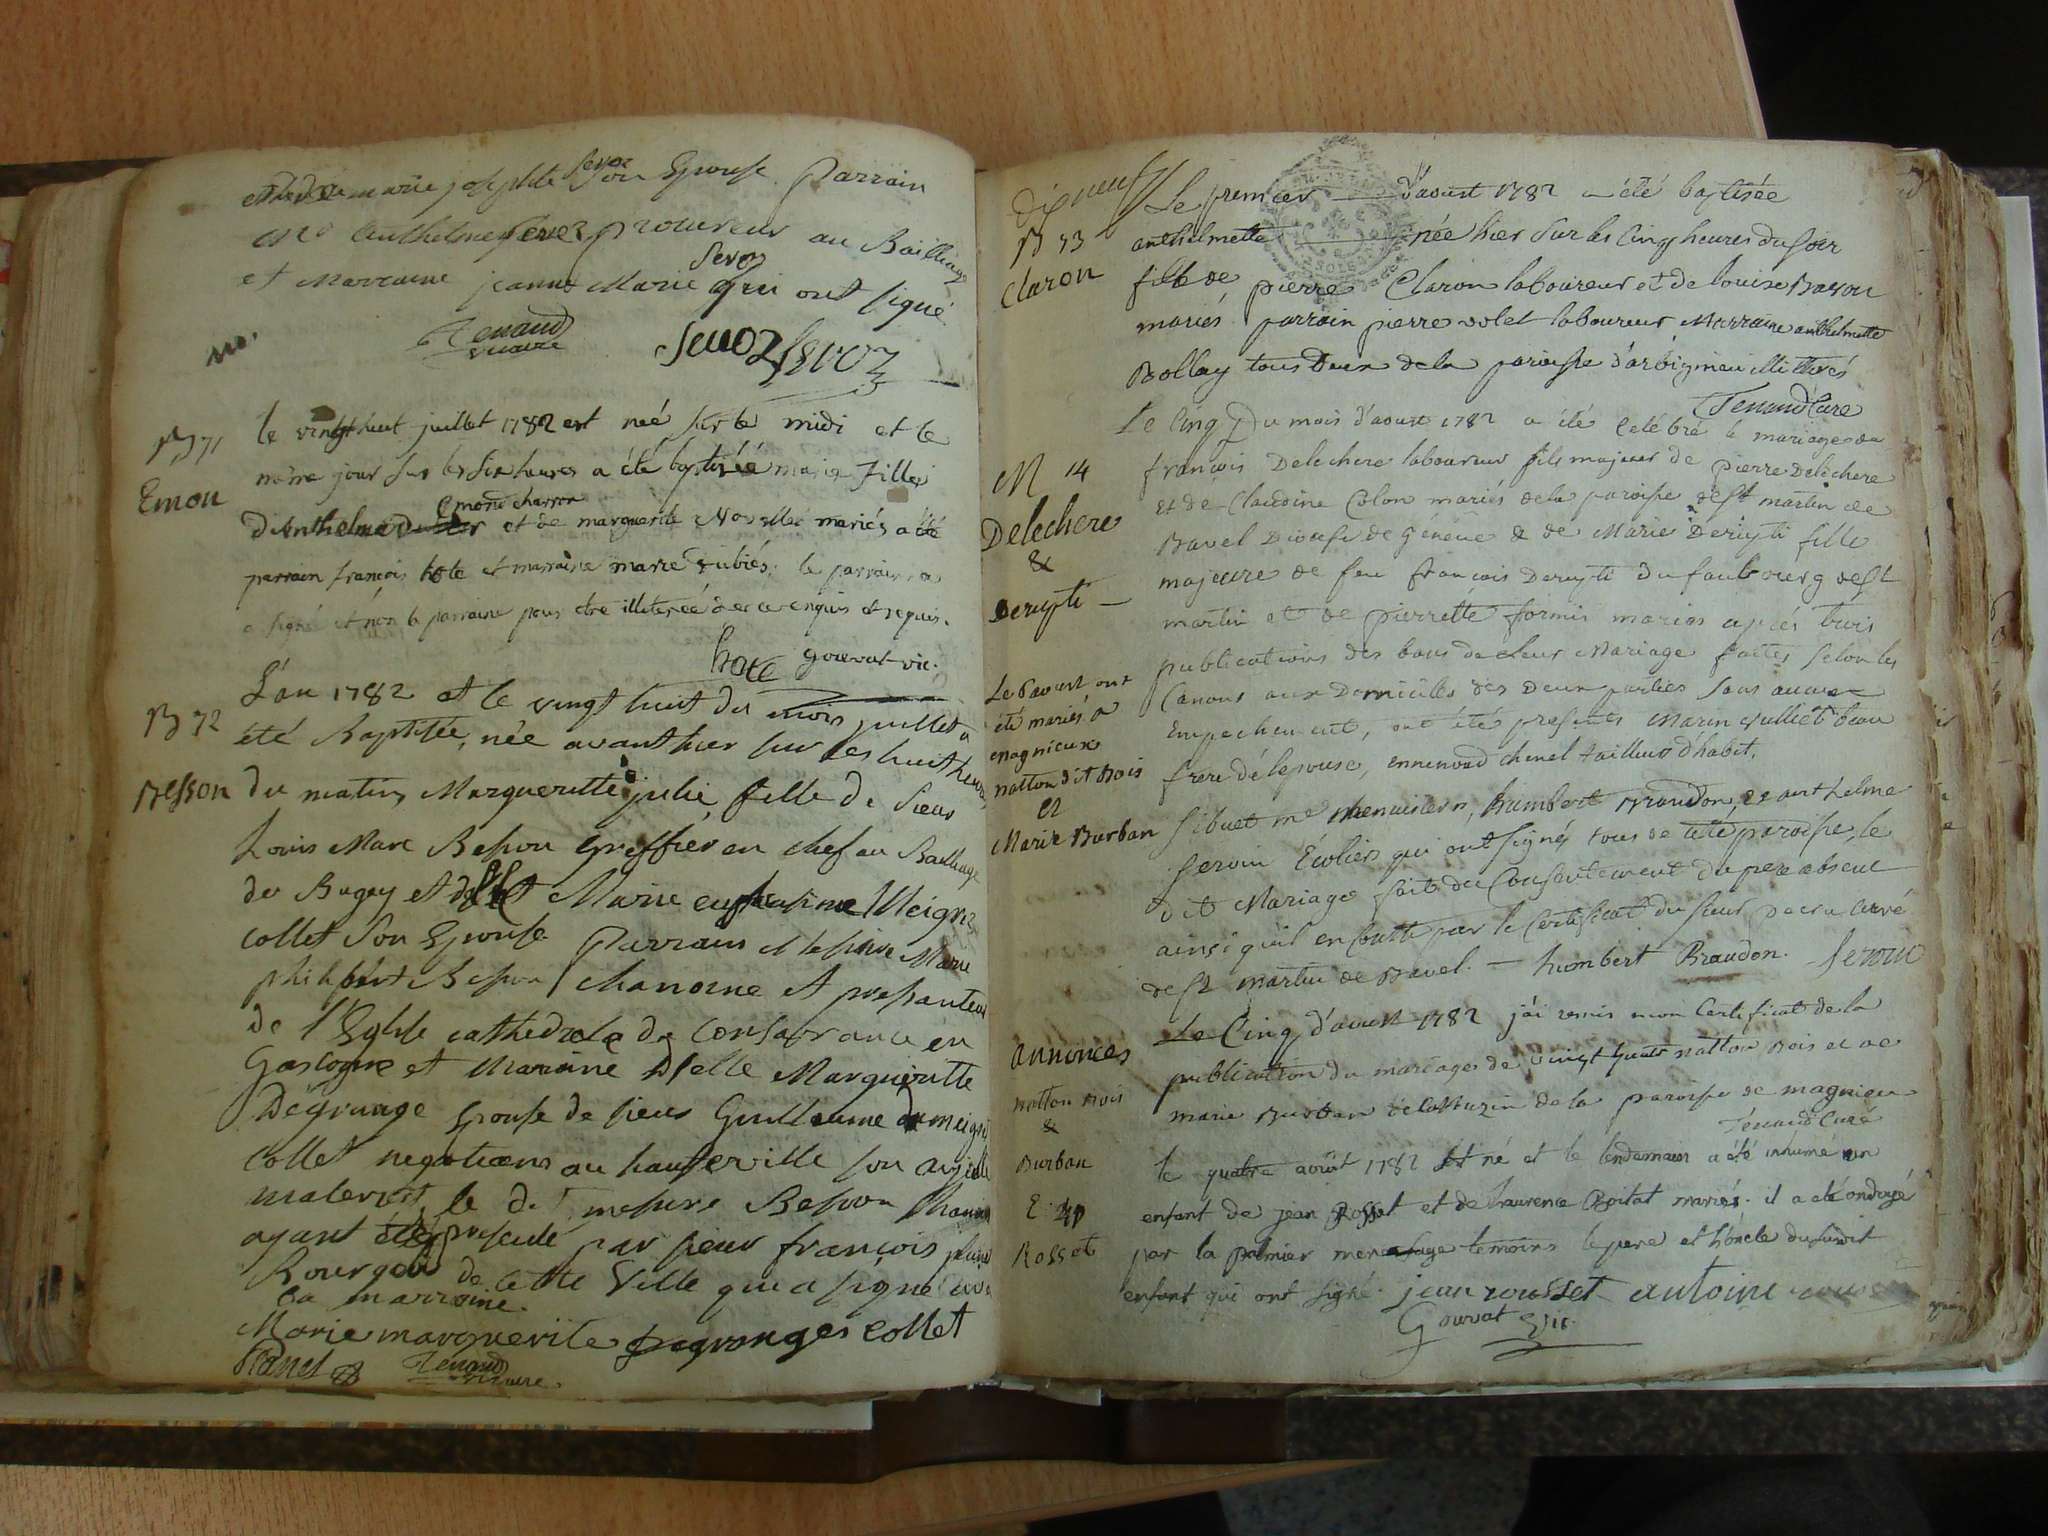 marie josephte Sevoz son Epouse Parrain
Anthelme Sevoz procureur au Bailliage
Sevoz
et Marraine jeanne Marie qui ont signé
Tenaud
vicaire
Sevoz Sevoz
B 71
Emon
le vingt huit juillet 1782 est née sur le midi et le
même jour sur les six heures a été baptisée marie fille
Emond charron
d'Anthelme et de marguerite mariés a été
parrain françois hote et marraine marie le parrain a
signé et non la marraine pour etre illiterée de ce enquis et requis.
hote gourvat vic.
B 72
Besson
L'an 1782 et le vingt huit du mois juillet a
été Baptisée, née avant hier sur les huit heures
du matin Margueritte julie fille de Sieur
Louis Marc Besson Greffier en chef au Bailliage
du Bugey et de Marie
collet son Epouse Parrain Messire Marie
philibert Besson chanoine et
de l'Eglise cathedrale de en
Gascogne et Maraine Dlle Margueritte
Dégrange Epouse de sieur Guillaume
collet negotians au hauteville son ayeulle
maternel, le dt messire Besson
ayant été par sieur françois
Bourgeois de cette Ville qui a signé avec
la marraine.
Marie marguerite degranges collet
Tenaud
vicaire
dixneuf
B 73
Claron
Le premier d'aoust 1782 a été baptisée
anthelmette née hier sur les cinq heures du soir
fille de pierre Claron laboureur et de louise
mariés parrain pierre volet laboureur Marraine anthelmette
Bollay tous deux de la paroisse d'arbignieu illittérés
Tenaud Curé
M 14
Delechere
&
Derupti
Le cinq du mois d'aoust 1782 a été celébré le mariage de
françois Delechere laboureur fils majeur de pierre Delechere
et de Claudine Colon mariés de la paroisse de St martin de
Bavel Diocese de Géneve & de Marie Derupti fille
majeure de feu francois Derupti du faubourg de St
martin et de pierrette formis mariés après trois
publications des bans de Leur Mariage faites selon les
Canons aux Domiciles des deux parties sans aucun
Empechement, ont été presents Marin vulliet beau
frere de lepouse, ennemond chenel tailleur d'habit,
sibuet me menuisier, humbert Braudon, et anthelme
Servin Ecolier qui ont signés tous de cette paroisse, le
dit Mariage fait du Consentement du pere absent
ainsi qu'il en Conste par le Certificat du sieur curé
de St martin de Bavel. — humbert Braudon. Servin
Le 6 aoust ont
été mariés a
magnieux
natton dit Bois
et
Marie Burban
annonces
natton Bois
&
Burban
Le Cinq d'aoust 1782 j'ai remis mon Certificat de la
publication du mariage de natton Bois et de
marie Burban de la paroisse de magnieu
Tenaud Curé
E
Rosset
le quatre août 1782 est né et le lendemain a été inhumé un
enfant de jean Rosset et de Laurence Boitat mariés. il a été ondoyé
par la temoins le pere et l'oncle dudit
enfant qui ont signé. jean rousset antoine
Gourvat vic.